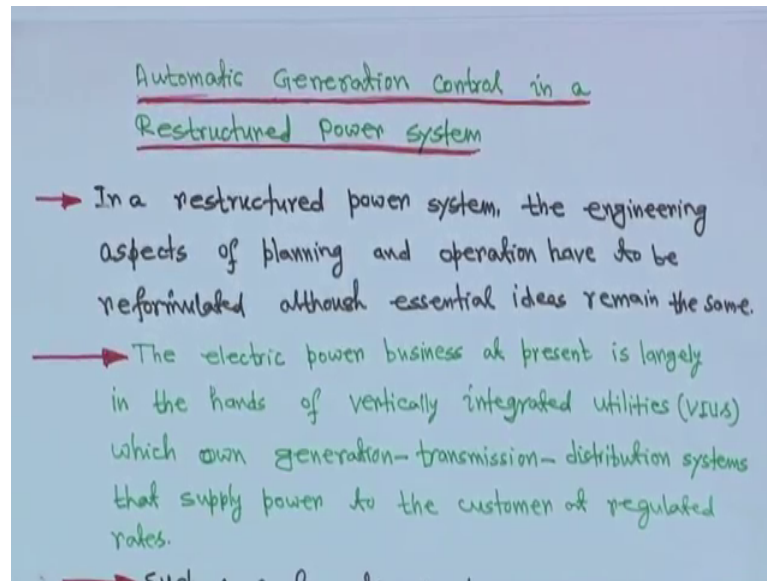 Automatic Generation Control in a
Restructured Power System
In a restructured power system, the engineering
aspects of planning and operation have to be
reformulated although essential ideas remain the same.
The electric power business at present is largely
in the hands of vertically integrated utilities (VIUs)
which own generation-transmission-distribution systems
that supply power to the customer at regulated
rates.